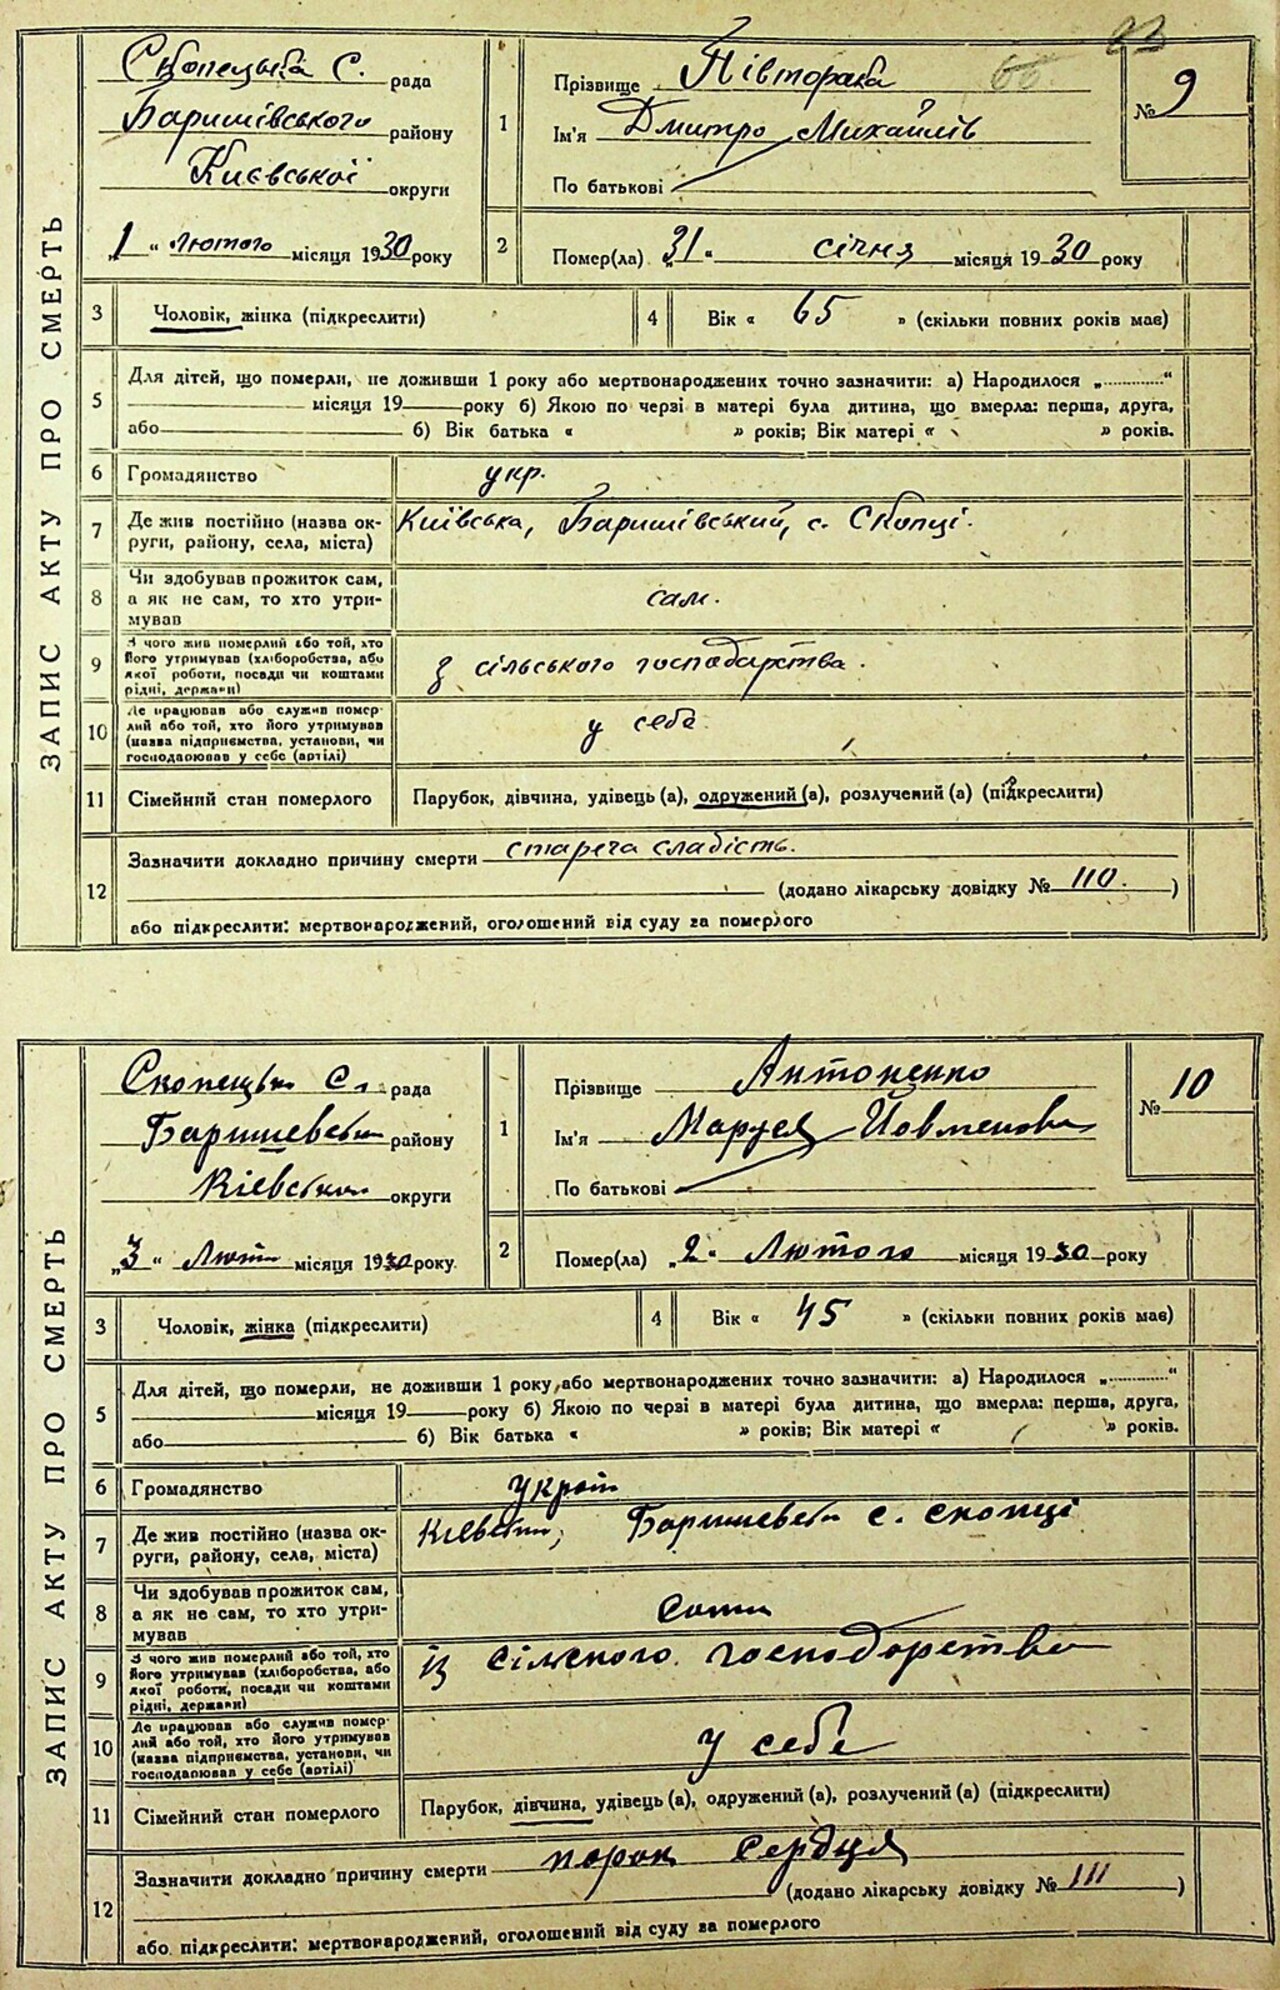 23
ЗАПИС АКТУ ПРО СМЕРТЬ
Скопецька С. рада
Баришівського району
Києвської округи
„1“ лютого місяця 1930 року
1 Прізвище Півторака
Ім'я Дмитро Михайлів
По батькові
№ 9
2 Помер(ла) „31“ січня місяця 1930 року
3 Чоловік, жінка (підкреслити)
4 Вік « 65 » (скільки повних років має)
5 Для дітей, що померли, не доживши 1 року або мертвонароджених точно зазначити: а) Народилося „............“
місяця 19 року б) Якою по черзі в матері була дитина, що вмерла: перша, друга,
або б) Вік батька « » років; Вік матері « » років.
6 Громадянство укр.
7 Де жив постійно (назва ок-
руги, району, села, міста) Київська, Баришівський, с. Скопці.
8 Чи здобував прожиток сам,
а як не сам, то хто утри-
мував сам.
9 З чого жив померлий або той, хто
його утримував (хліборобства, або
якої роботи, посади чи коштами
рідні, держави) з сільського господарства.
10 Де працював або служив помер-
лий або той, хто його утримував
(назва підприємства, установи, чи
господарював у себе (артілі) у себе
11 Сімейний стан померлого Парубок, дівчина, удівець (а), одружений (а), розлучений (а) (підкреслити)
12 Зазначити докладно причину смерти стареча слабість.
(додано лікарську довідку № 110. )
або підкреслити: мертвонароджений, оголошений від суду за померлого
ЗАПИС АКТУ ПРО СМЕРТЬ
Скопецьк С. рада
Баришевськ району
Кіевськ округи
„3“ Лют місяця 1930 року.
1 Прізвище Антоценко
Ім'я Маруся Йовменова
По батькові
№ 10
2 Помер(ла) „2“ Лютого місяця 1930 року
3 Чоловік, жінка (підкреслити)
4 Вік « 45 » (скільки повних років має)
5 Для дітей, що померли, не доживши 1 року або мертвонароджених точно зазначити: а) Народилося „............“
місяця 19 року б) Якою по черзі в матері була дитина, що вмерла: перша, друга,
або б) Вік батька « » років; Вік матері « » років.
6 Громадянство
7 Де жив постійно (назва ок-
руги, району, села, міста) Кіевськ, Баришевськ с. Скопці
8 Чи здобував прожиток сам,
а як не сам, то хто утри-
мував сама
9 З чого жив померлий або той, хто
його утримував (хліборобства, або
якої роботи, посади чи коштами
рідні, держави) Із сільского господорства
10 Де працював або служив помер-
лий або той, хто його утримував
(назва підприємства, установи, чи
господарював у себе (артілі) у себе
11 Сімейний стан померлого Парубок, дівчина, удівець (а), одружений (а), розлучений (а) (підкреслити)
12 Зазначити докладно причину смерти порок Сердця
(додано лікарську довідку № 111 )
або підкреслити: мертвонароджений, оголошений від суду за померлого